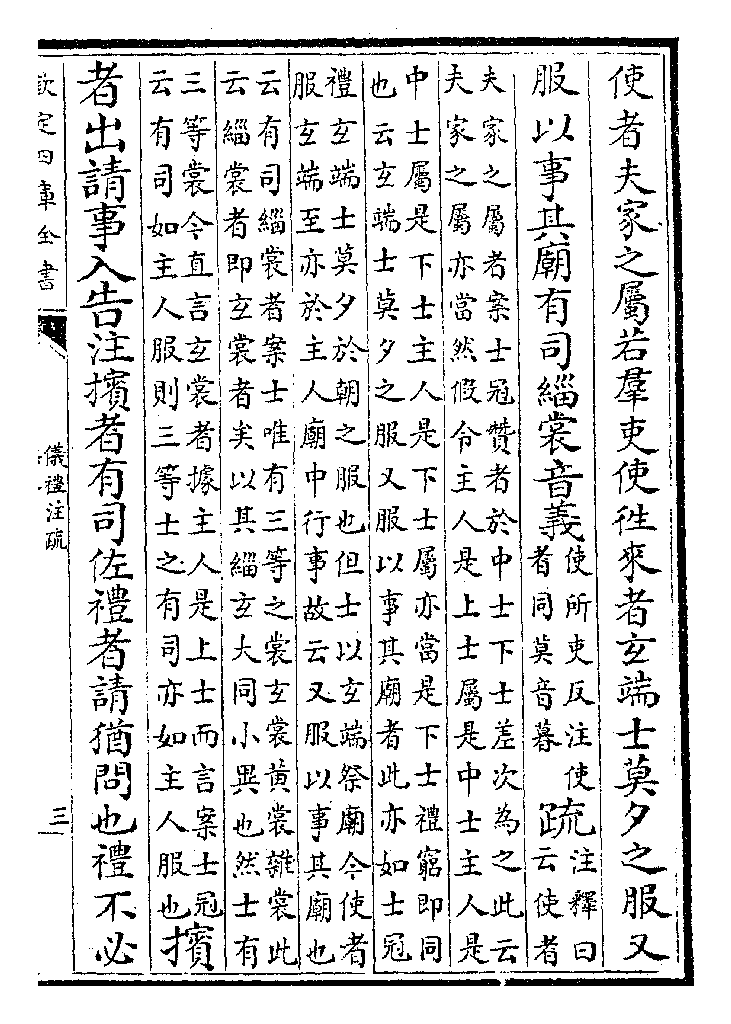 使者夫家之屬若羣吏使徃來者玄端士莫夕之服又
服以事其廟有司緇裳音義使所吏反注使
者同莫音暮疏注釋曰
云使者
夫家之屬者案士冠贊者於中士下士差次為之此云
夫家之屬亦當然假令主人是上士屬是中士主人是
中士屬是下士主人是下士屬亦當是下士禮窮即同
也云玄端士莫夕之服又服以事其廟者此亦如士冠
禮玄端士莫夕於朝之服也但士以玄端祭廟今使者
服玄端至亦於主人廟中行事故云又服以事其廟也
云有司緇裳者案士唯有三等之裳玄裳黃裳雜裳此
云緇裳者即玄裳者矣以其緇玄大同小異也然士有
三等裳今直言玄裳者據主人是上士而言案士冠
云有司如主人服則三等士之有司亦如主人服也擯
者出請事入告注擯者有司佐禮者請猶問也禮不必
欽定四庫全書
儀禮注疏
三